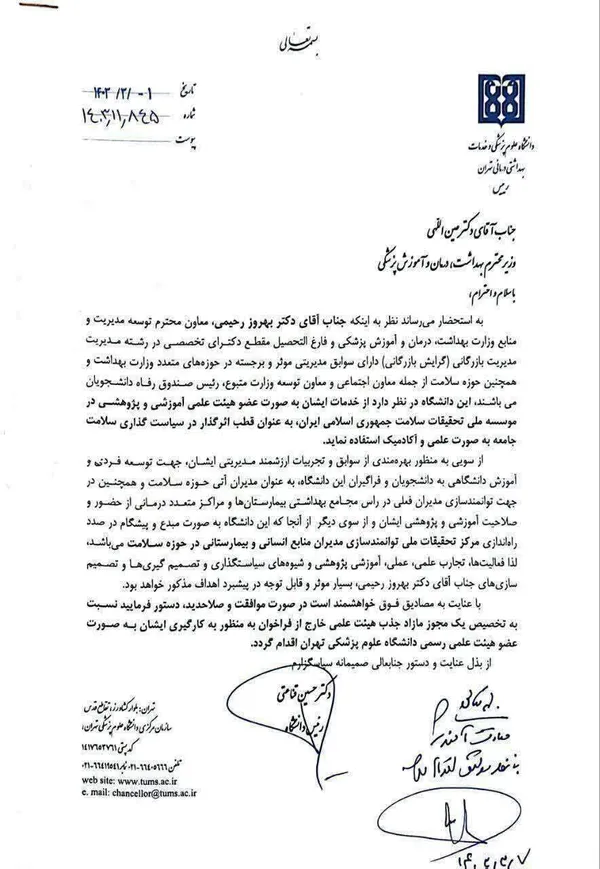 بسمه تعالی
تاریخ ۱۴۰۳/۳/۰۱
شماره ۱۴۰۳٫۱۱٫۸۴۵
پیوست
دانشگاه علوم پزشکی و خدمات
بهداشتی درمانی تهران
رییس
جناب آقای دکتر عین اللهی
وزیر محترم بهداشت، درمان و آموزش پزشکی
با سلام و احترام،
به استحضار می‌رساند نظر به اینکه جناب آقای دکتر بهروز رحیمی، معاون محترم توسعه مدیریت و
منابع وزارت بهداشت، درمان و آموزش پزشکی و فارغ التحصیل مقطع دکترای تخصصی در رشته مدیریت
مدیریت بازرگانی (گرایش بازرگانی) دارای سوابق مدیریتی موثر و برجسته در حوزه‌های متعدد وزارت بهداشت و
همچنین حوزه سلامت از جمله معاون اجتماعی و معاون توسعه وزارت متبوع، رئیس صندوق رفاه دانشجویان
می باشند، این دانشگاه در نظر دارد از خدمات ایشان به صورت عضو هیئت علمی آموزشی و پژوهشی در
موسسه ملی تحقیقات سلامت جمهوری اسلامی ایران، به عنوان قطب اثرگذار در سیاست گذاری سلامت
جامعه به صورت علمی و آکادمیک استفاده نماید.
از سویی به منظور بهره‌مندی از سوابق و تجربیات ارزشمند مدیریتی ایشان، جهت توسعه فردی و
آموزش دانشگاهی به دانشجویان و فراگیران این دانشگاه، به عنوان مدیران آتی حوزه سلامت و همچنین در
جهت توانمندسازی مدیران فعلی در راس مجامع بهداشتی بیمارستان‌ها و مراکز متعدد درمانی از حضور و
صلاحیت آموزشی و پژوهشی ایشان و از سوی دیگر از آنجا که این دانشگاه به صورت مبدع و پیشگام در صدد
راه‌اندازی مرکز تحقیقات ملی توانمندسازی مدیران منابع انسانی و بیمارستانی در حوزه سلامت می‌باشد،
لذا فعالیت‌ها، تجارب علمی، عملی، آموزشی پژوهشی و شیوه‌های سیاستگذاری و تصمیم گیری‌ها و تصمیم
سازی‌های جناب آقای دکتر بهروز رحیمی، بسیار موثر و قابل توجه در پیشبرد اهداف مذکور خواهد بود.
با عنایت به مصادیق فوق خواهشمند است در صورت موافقت و صلاحدید، دستور فرمایید نسبت
به تخصیص یک مجوز مازاد جذب هیئت علمی خارج از فراخوان به منظور به کارگیری ایشان به صورت
عضو هیئت علمی رسمی دانشگاه علوم پزشکی تهران اقدام گردد.
از بذل عنایت و دستور جنابعالی صمیمانه سپاسگزارم
دکتر حسین قناعتی
رئیس دانشگاه
تهران: بلوار کشاورز، تقاطع قدس
سازمان مرکزی دانشگاه علوم پزشکی تهران،
کد پستی ۱۴۱۷۶۵۳۷۶۱
web site: www.tums.ac.ir
e. mail: chancellor@tums.ac.ir